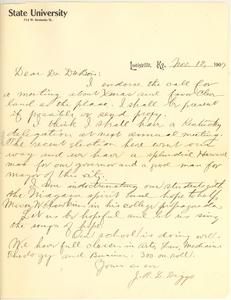 State University
Louisville, Ky. Nov 18, 1907
Dear Dr. DuBois:
I endorse the call for
a meeting about Xmas and favor Cleve
land as the place. I shall be present
if possible or send proxy.
I think I shall have a Kentucky
delegation at next annual meeting.
The recent election here went our
way and we have a splendid Harvard
man for our governor and a good man for
mayor of this city.
I am indoctrinating our students with
the Niagara spirit and hope to help
in his college propaganda.
Let us be hopeful and let us sing
the songs of hope.
Our school is doing well.
We have full classes in Arts, Law, Medicine
Theology and Business. 300 on roll.
Yours as ever